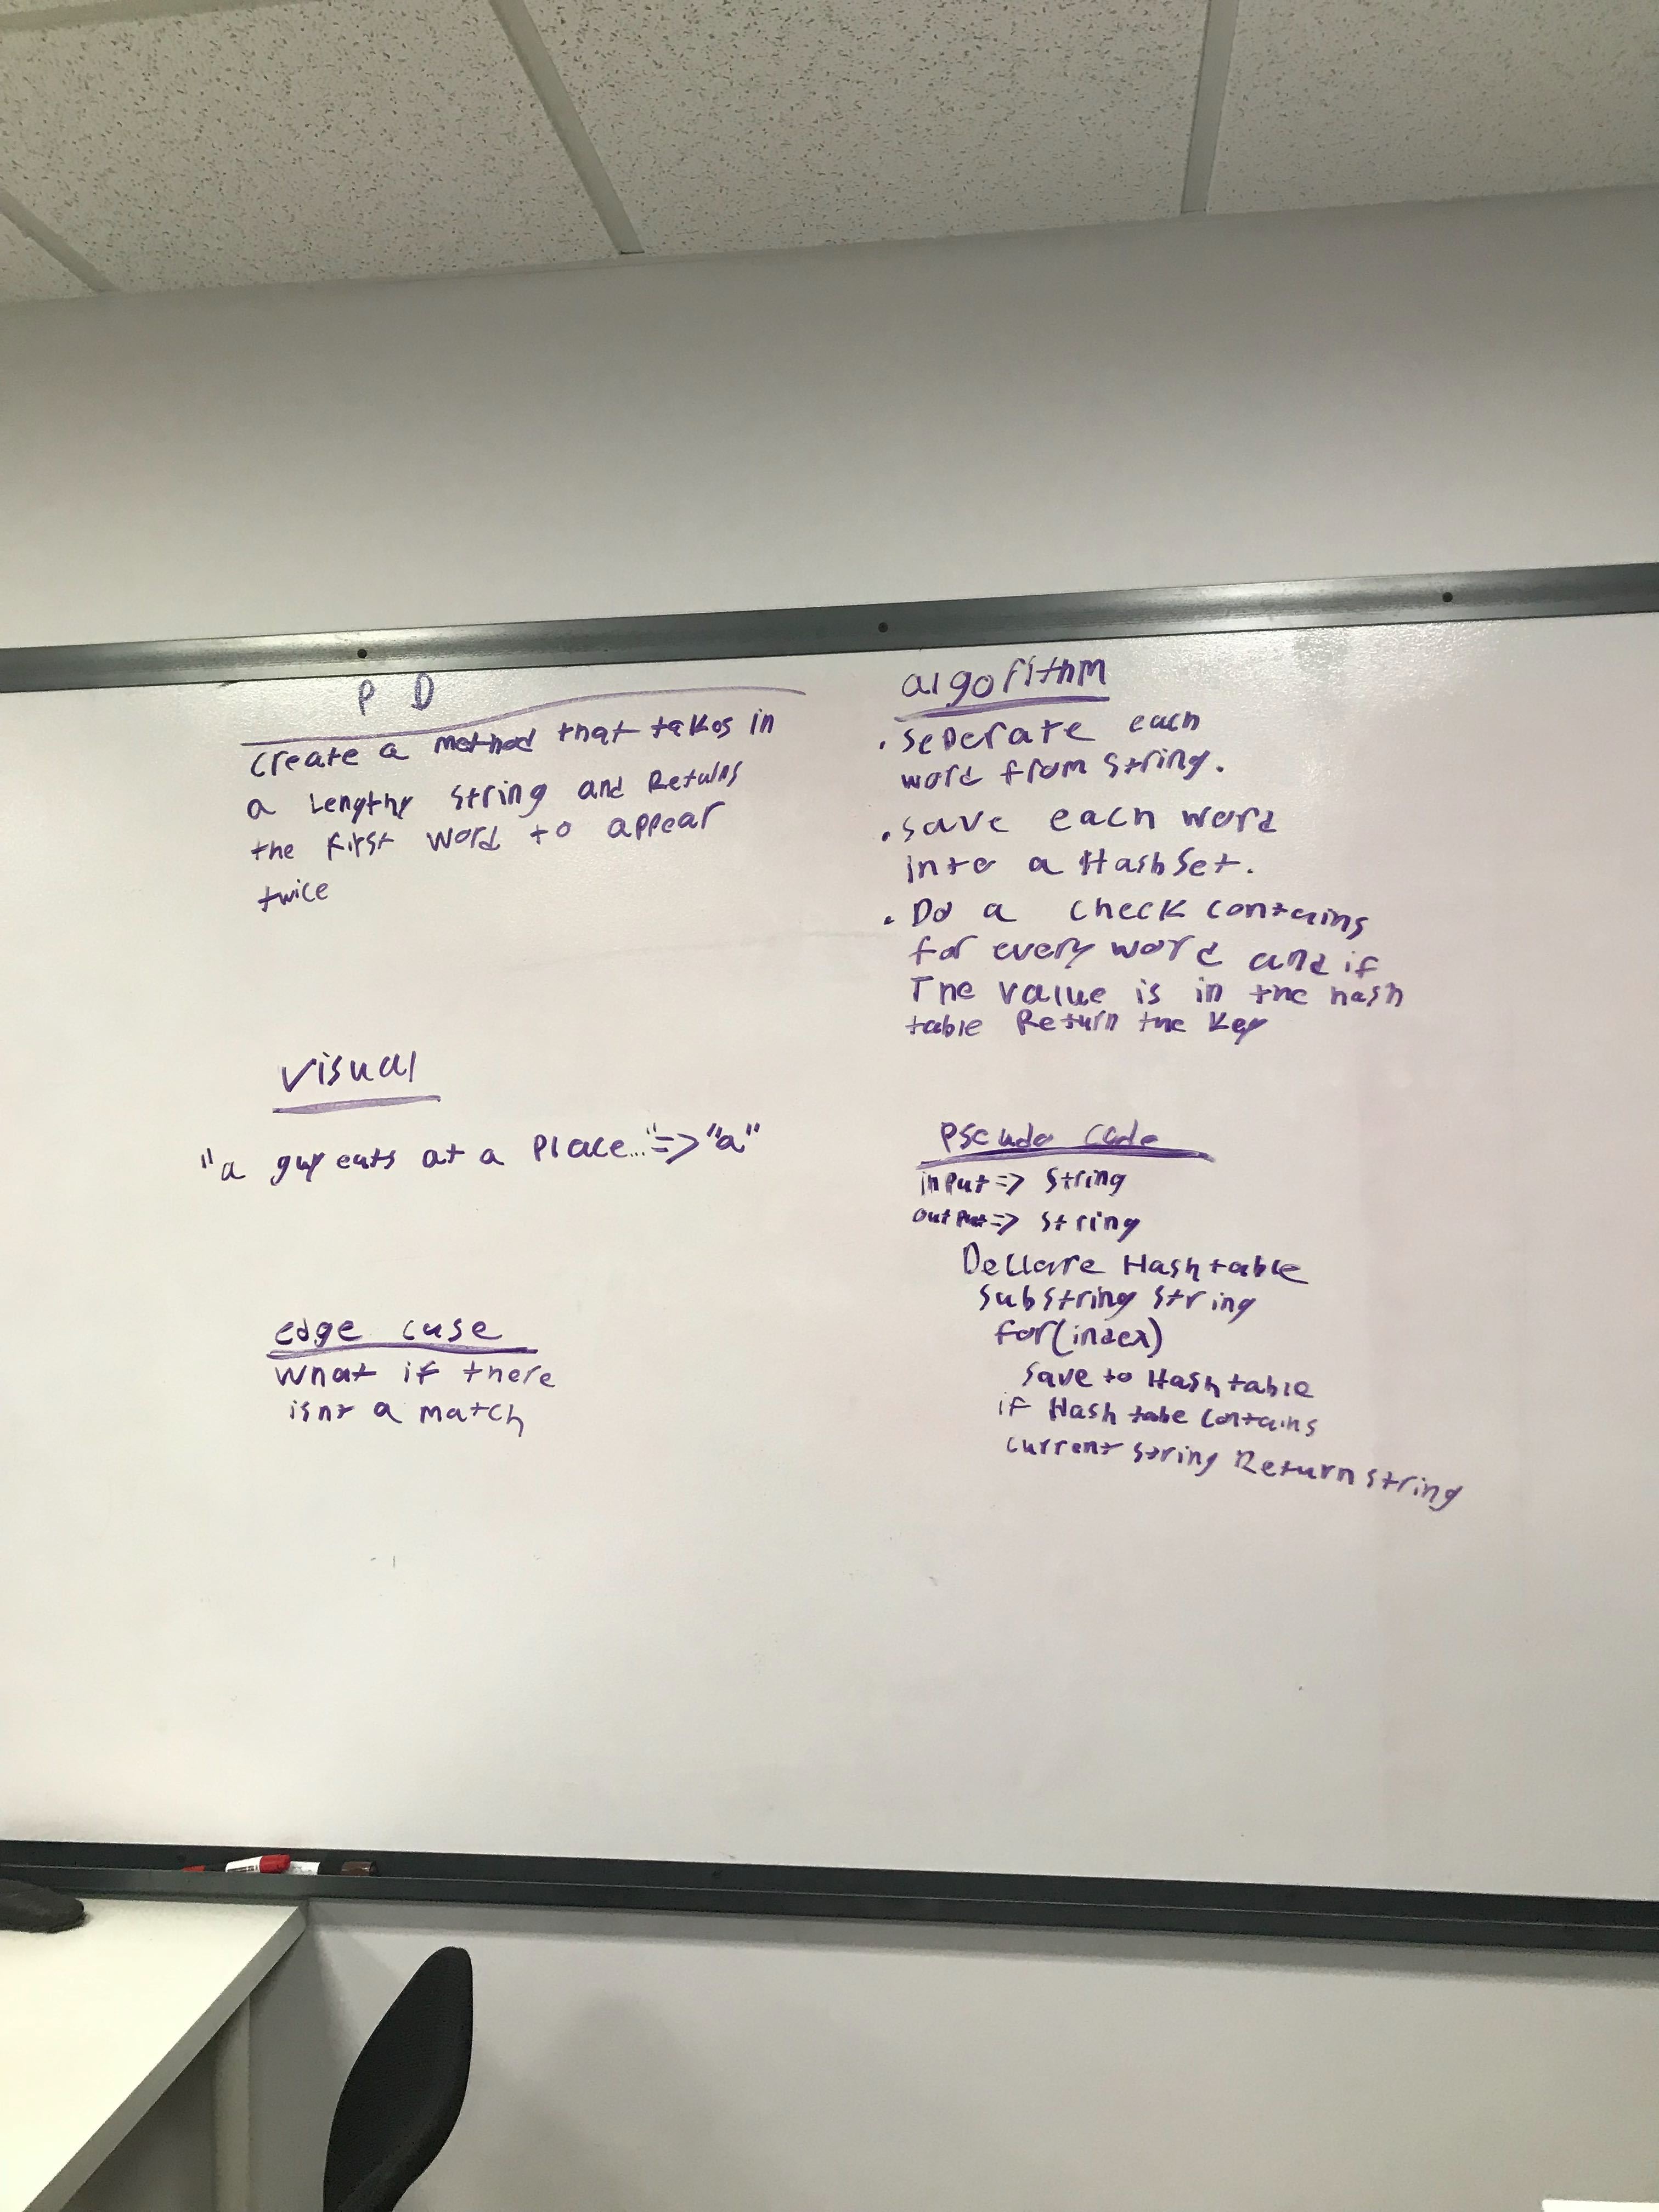 P D
Create a method that takes in
a Lengthy string and Returns
the first word to appear
twice
Visual
"a guy eats at a Place..."=>"a"
edge case
What if there
isnt a match
algorithm
. Seperate each
word from string.
. Save each word
into a HashSet.
. Do a check contains
for every word and if
The value is in the hash
table Return the Key
Pseudo code
input=> String
output=> String
Decllare Hashtable
Substring String
for(index)
Save to Hashtable
if Hash tabe contains
current string Return string